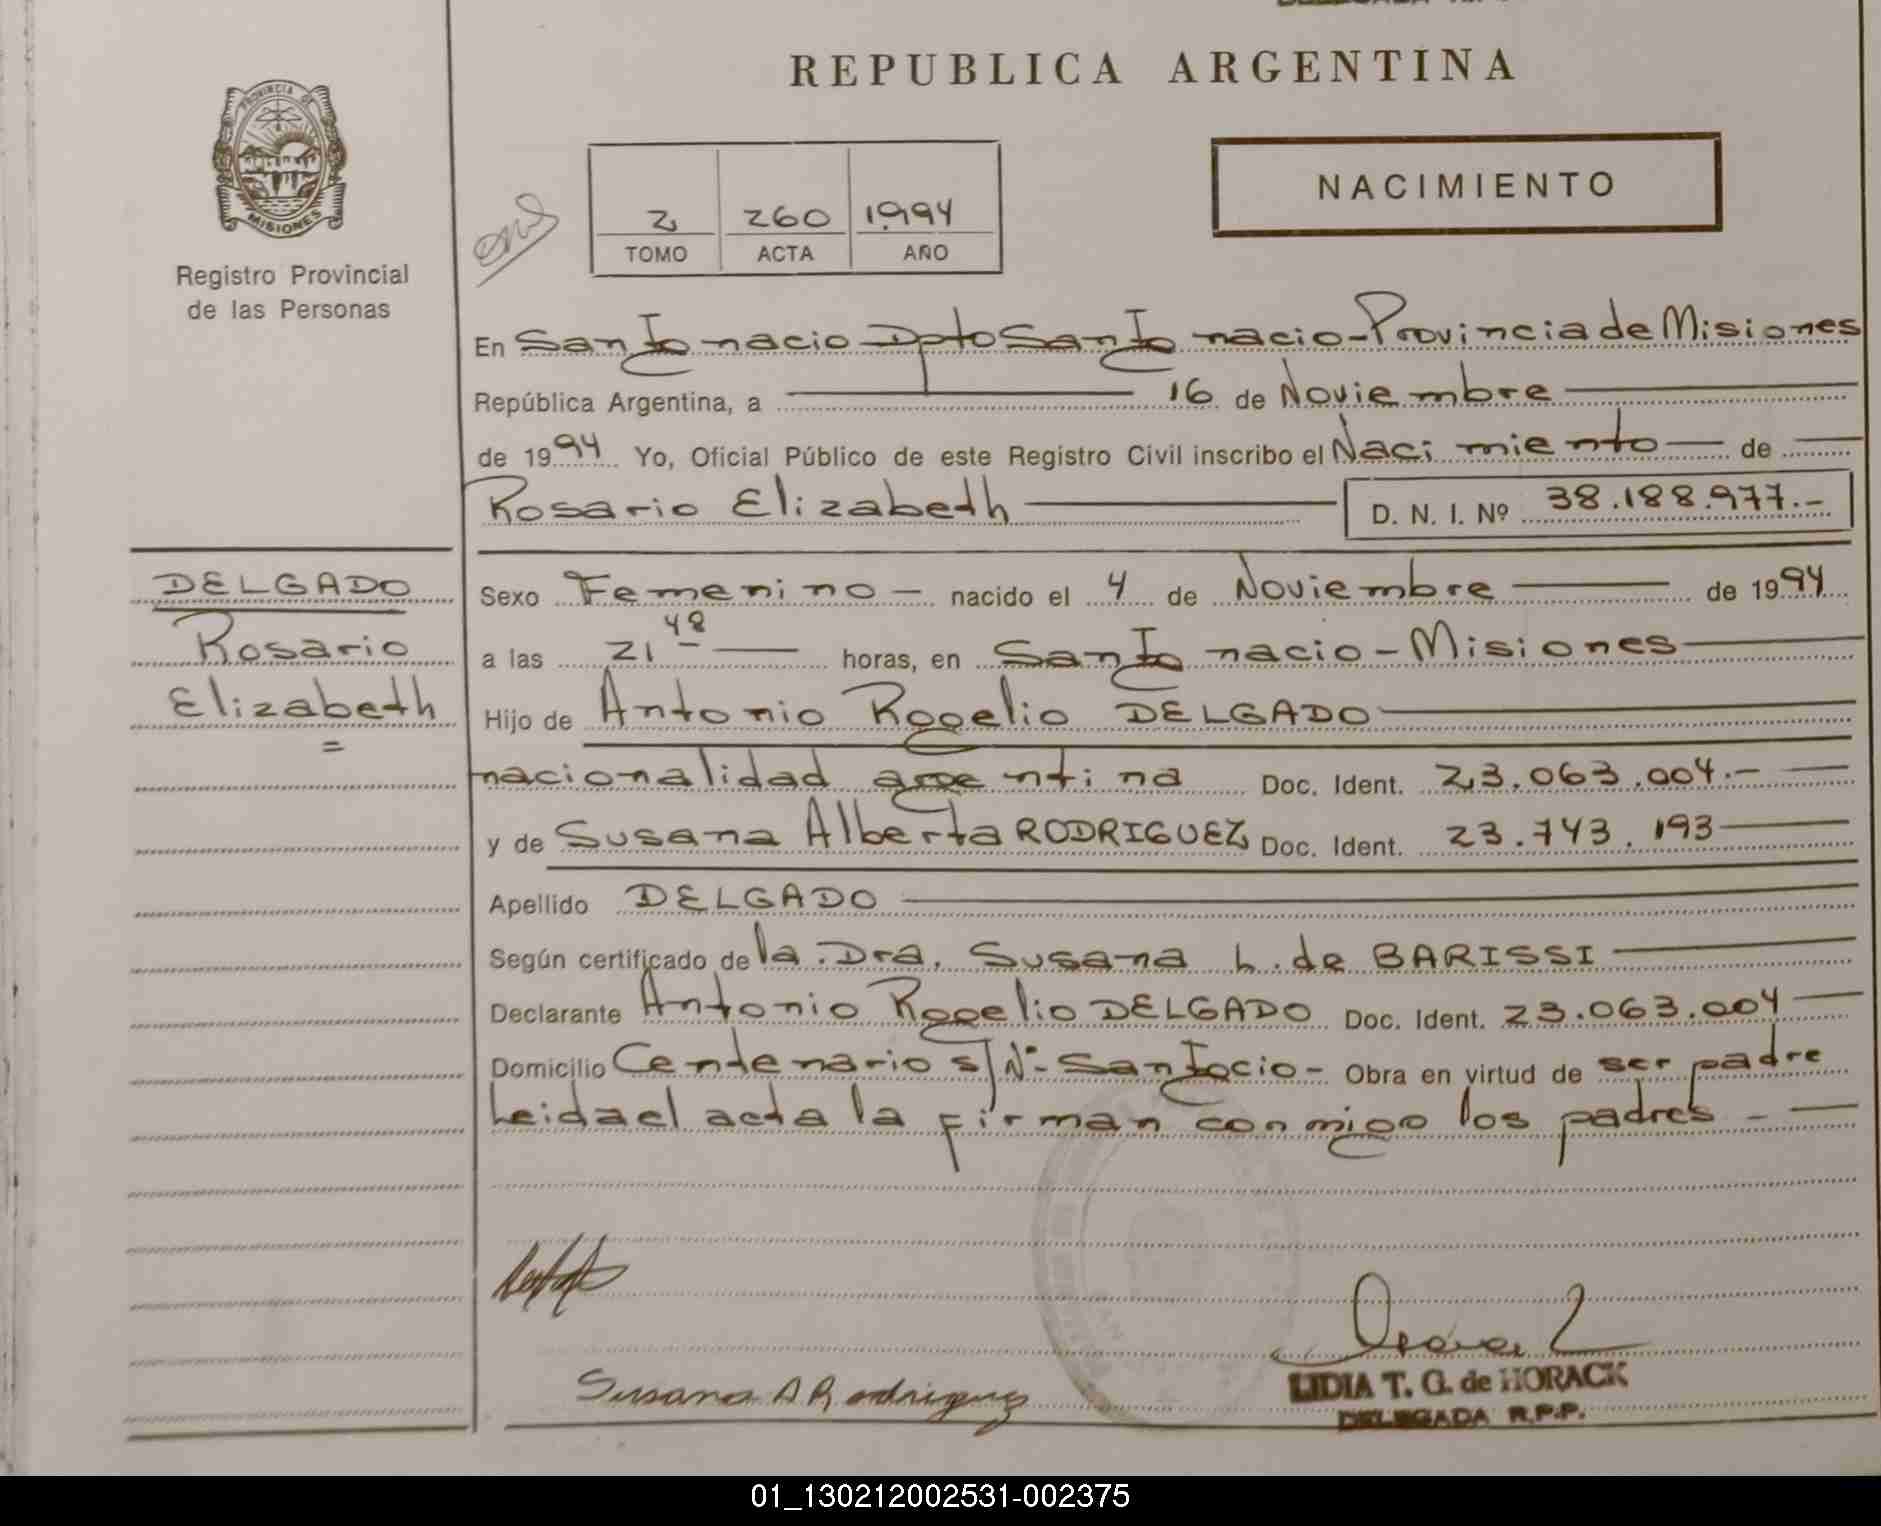 REPUBLICA ARGENTINA
PROVINCIA DE
MISIONES
Registro Provincial
de las Personas
2 260 1994
TOMO ACTA AÑO
NACIMIENTO
En San Ignacio Dpto San Ignacio - Provincia de Misiones
República Argentina, a 16 de Noviembre
de 1994 Yo, Oficial Público de este Registro Civil inscribo el Nacimiento de
Rosario Elizabeth D. N. I. Nº 38.188.977.-
DELGADO
Rosario
Elizabeth
=
Sexo Femenino - nacido el 4 de Noviembre de 1994
a las 21 48 horas, en San Ignacio - Misiones
Hijo de Antonio Rogelio DELGADO
nacionalidad argentina Doc. Ident. 23.063.004.-
y de Susana Alberta RODRIGUEZ Doc. Ident. 23.743.193
Apellido DELGADO
Según certificado de la Dra. Susana L. de BARISSI
Declarante Antonio Rogelio DELGADO Doc. Ident. 23.063.004
Domicilio Centenario s/Nº - San Igcio - Obra en virtud de ser padre
Leida el acta la firman conmigo los padres -
Susana A Rodriguez
LIDIA T. G. de HORACK
DELEGADA R.P.P.
01_130212002531-002375